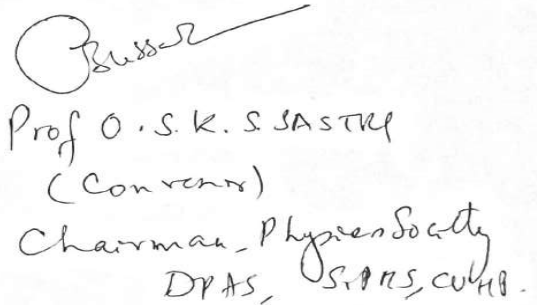 Prof O.S.K.S. SASTRI
(Convenor)
Chairman, Physics Society
DPAS, SoPMS, CUHP.